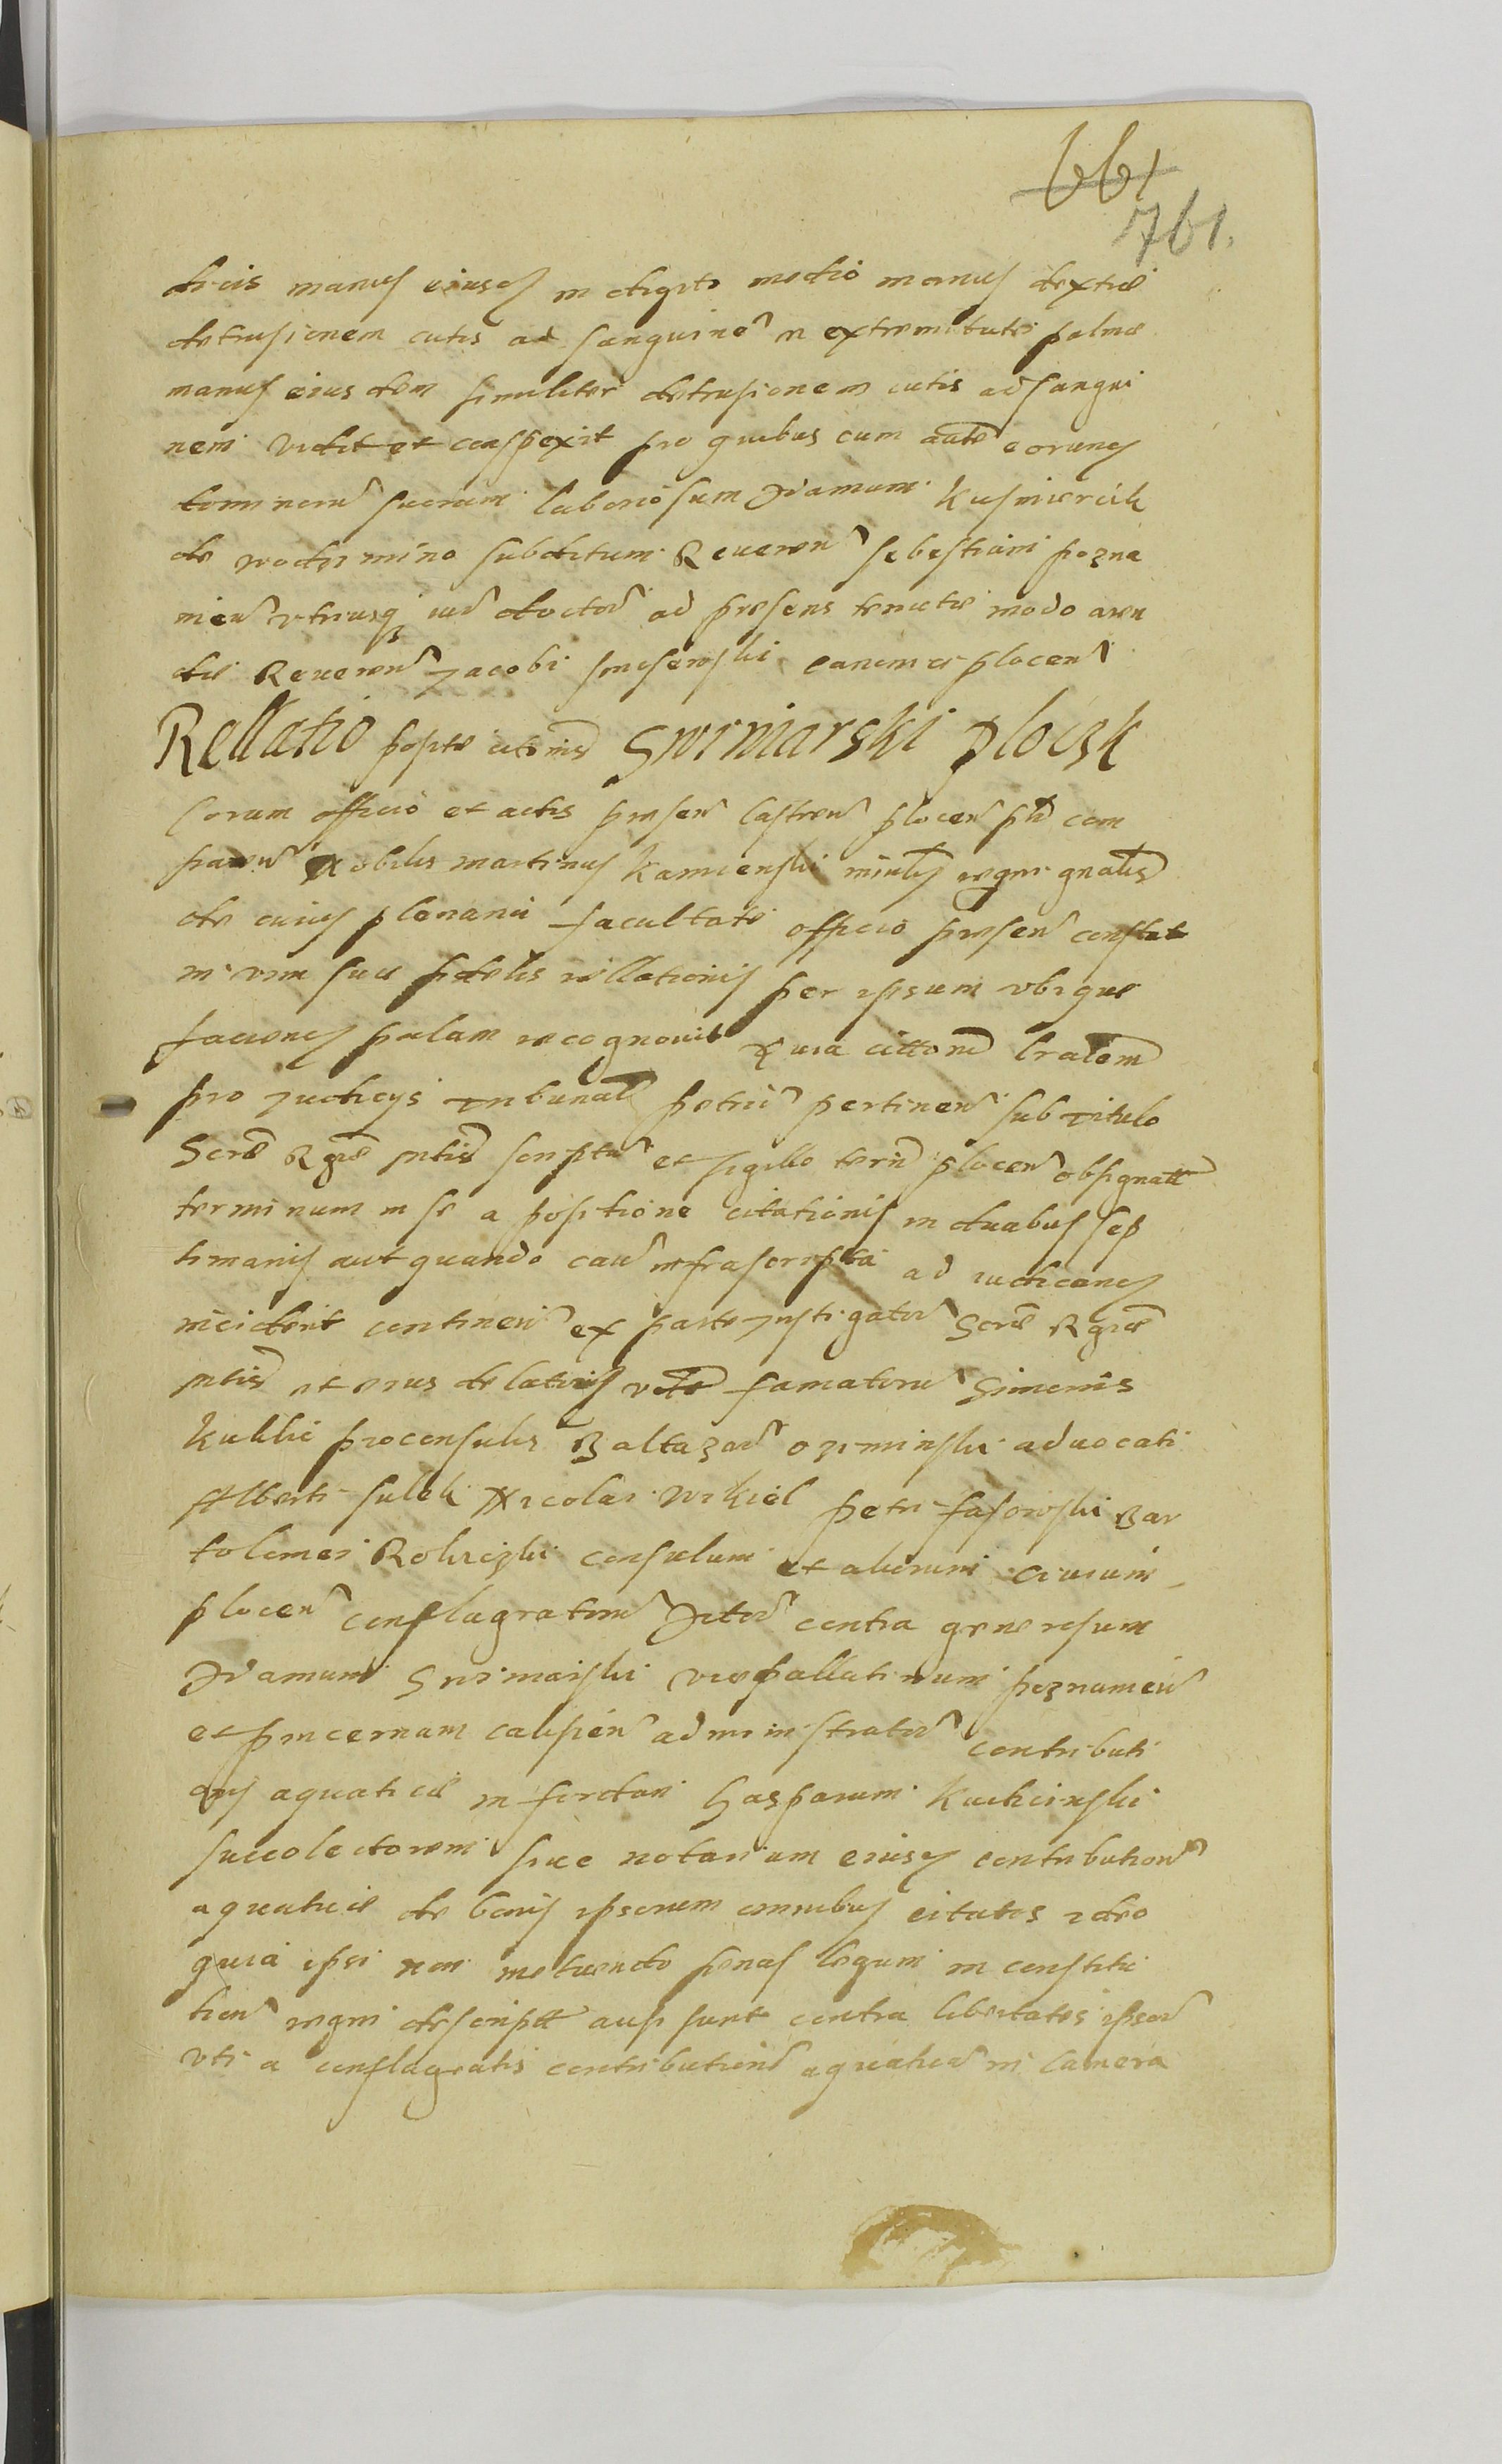 661
761.
dicis manus eiusq in digito medio manus dextrae
detrusionem cutis ad sanguine in extremitate palmae
manus eiusdem similiter detrusionem cutis ad sangui
nem vidit et conspexit pro quibus cum aute eorunq
dominoru suorum laboriosum Adamum Kusmierczik
de wodzimino subditum Reveren sebastiani pozna
nien utriusq iur doctor ad presens tenutae modo aren
dae Reveren Jacobi canonici plocen
Rellatio posite citonis Swiniarski Plocsk
Coram officio et actis presen Castren plocen ptr com
paren Nobilis martinus Kamienski minlis regni gnalis
de cuius plenaria facultate officio presen constat
in vim suae fidelis rellationis per ipsum ubique
faciens palam recognovit Quia cittone lralem
pro Judicys Tribunal petric pertinen sub Titulo
Scrae Rgiae mtis script et sigillo terr plocen obsignatt
terminum in se a positione citationis in duabus sep
timanis aut quando cau infrascripta ad iudicanq
inciderit continen ex parte Instigator Scrae Rgiae
mtis et eius delatoris famatoru Simonis
Kuklic proconsulis Baltazar oziminski advocati
Alberti sulek Nicolai wikiel petri fasowski Bar
tolomei consulum et aliorum civium
plocen conflagratoru Actor contra generosum
Adamum Swimarski vicepallatinum poznanien
et pincernam calisien administrator contributi
onis aquaticae in fordan Gasparum Kuchcinski
succolectorem sive notarium eiusq contribution
aquaticae de bonis ipsorum omnibus citatos ideo
quia ipsi non metuendo penas legum in constitu
tion regni descriptt ausi sunt contra libertates ipsor
uti a conflagratis contribution aquatica in Camera